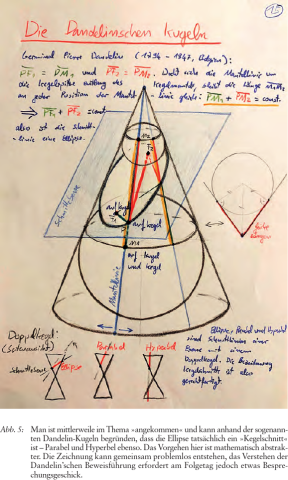 15
Die Dandelinschen Kugeln
Germinal Pierre Dandelin (1794 - 1847, Belgien):
PF₁ = PM₁ und PF₂ = PM₂. Dreht sich die Mantellinie um
die Kegelspitze entlang des Kegelmantels, bleibt die Länge M₁M₂
an jeder Position der Mantellinie gleich: PM₁ + PM₂ = const.
⟹ PF₁ + PF₂ = const.
also ist die Schnitt-
linie eine Ellipse.
M₂
F₂
Schnittebene
auf Kegel
auf Kegel
M₁
auf Kegel
und Kugel
Mantellinie
gleiche
Längen
Doppelkegel:
(Seitenansicht)
Schnittebene
Ellipse
Parabel
Hyperbel
Ellipse, Parabel und Hyperbel
sind Schnittlinien einer
Ebene mit einem
Doppelkegel. Die Bezeichnung
Kegelschnitte ist also
gerechtfertigt.
Abb. 5: Man ist mittlerweile im Thema «angekommen» und kann anhand der sogenann-
ten Dandelin-Kugeln begründen, dass die Ellipse tatsächlich ein «Kegelschnitt»
ist – Parabel und Hyperbel ebenso. Das Vorgehen ist mathematisch abstrak-
ter. Die Zeichnung kann gemeinsam problemlos entstehen, das Verstehen der
Dandelin'schen Beweisführung erfordert am Folgetag jedoch etwas Bespre-
chungsgeschick.